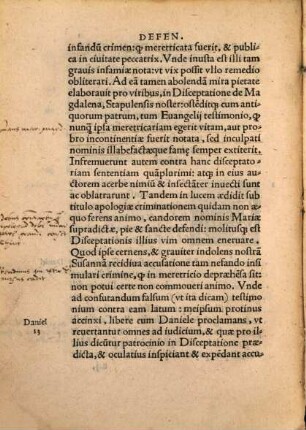 DEFEN.
infandũ crimen: ꝙ meretricata fuerit, & publi-
ca in ciuitate peccatrix. Vnde inusta est illi tam
grauis infamiæ nota: vt vix possit vllo remedio
obliterari. Ad eã tamen abolendã mira pietate
elaborauit pro viribus, in Disceptatione de Ma
gdalena, Stapulensis noster: ostẽditꝙ cum anti-
quorum patrum, tum Euangelij testimonio, ꝙ
nunꝙ̃ ipsa meretricariam egerit vitam, aut pro-
bro incontinentiæ fuerit notata, sed inculpati
nominis illabefactæꝙ famę semper extiterit.
Infremuerunt autem contra hanc disceptatio-
riam sententiam quàplurimi: atꝙ in eius au-
ctorem acerbe nimiũ & insectãter inuecti sunt
ac oblatrarunt. Tandem in lucem ædidit sub
titulo apologiæ criminationem quidam non æ-
quo ferens animo, candorem nominis Mariæ
supradictæ, pie & sancte defendi: molitusꝙ est
Disceptationis illius vim omnem eneruare.
Quod ipse cernens, & grauiter indolens nostrã
Susannã recidiua accusatione tam nefando ins
mulari crimine, ꝙ in meretricio depræhẽsa sit:
non potui certe non commoueri animo. Vnde
ad confutandum falsum (vt ita dicam) testimo
nium contra eam latum: meipsum protinus
accinxi, libere cum Daniele proclamans, vt
Daniel
13
reuertantur omnes ad iudicium, & quæ pro il-
lius dicũtur patrocinio in Disceptatione præ-
dicta, & oculatius inspiciant & expẽdant accu